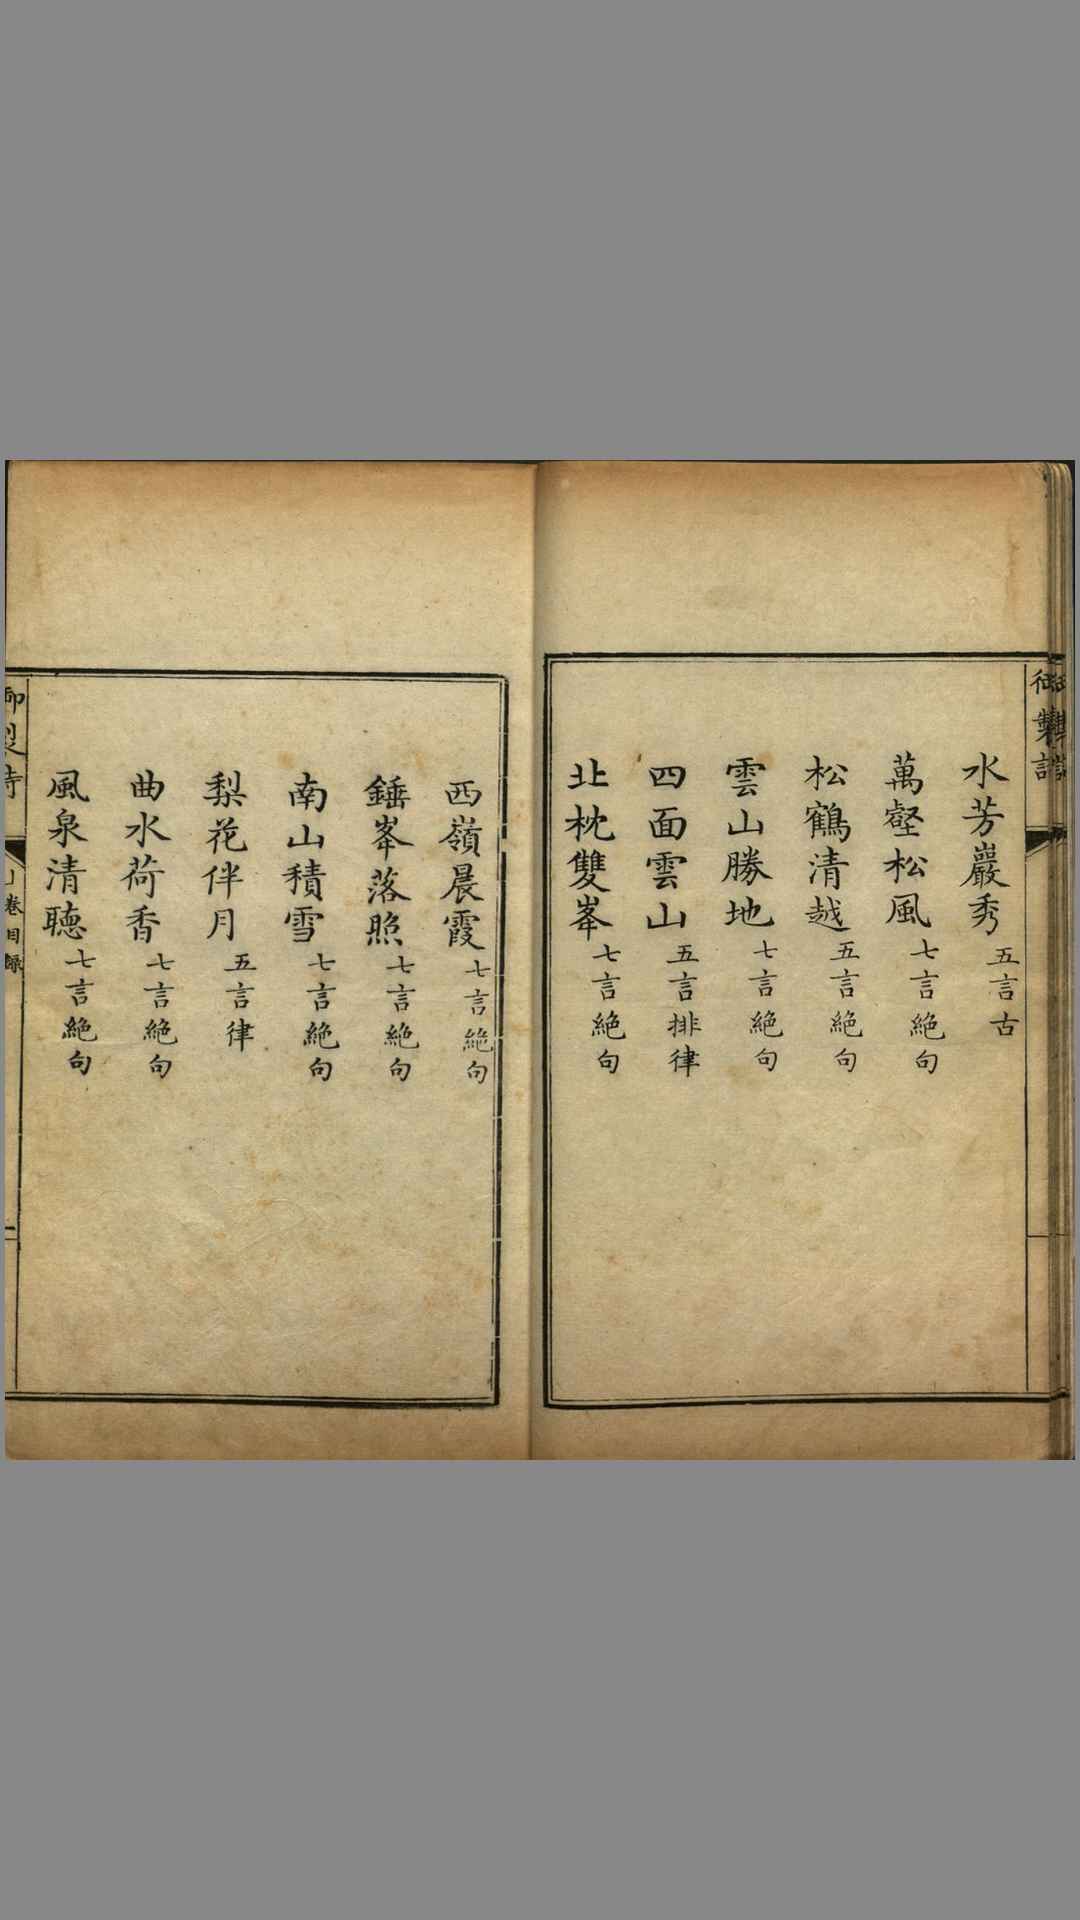 御製詩
水芳巖秀 五言古
萬壑松風 七言絶句
松鶴清越 五言絶句
雲山勝地 七言絶句
四面雲山 五言排律
北枕雙峯 七言絶句
西嶺晨霞 七言絶句
錘峯落照 七言絶句
南山積雪 七言絶句
梨花伴月 五言律
曲水荷香 七言絶句
風泉清聴 七言絶句
御製詩
卷目録